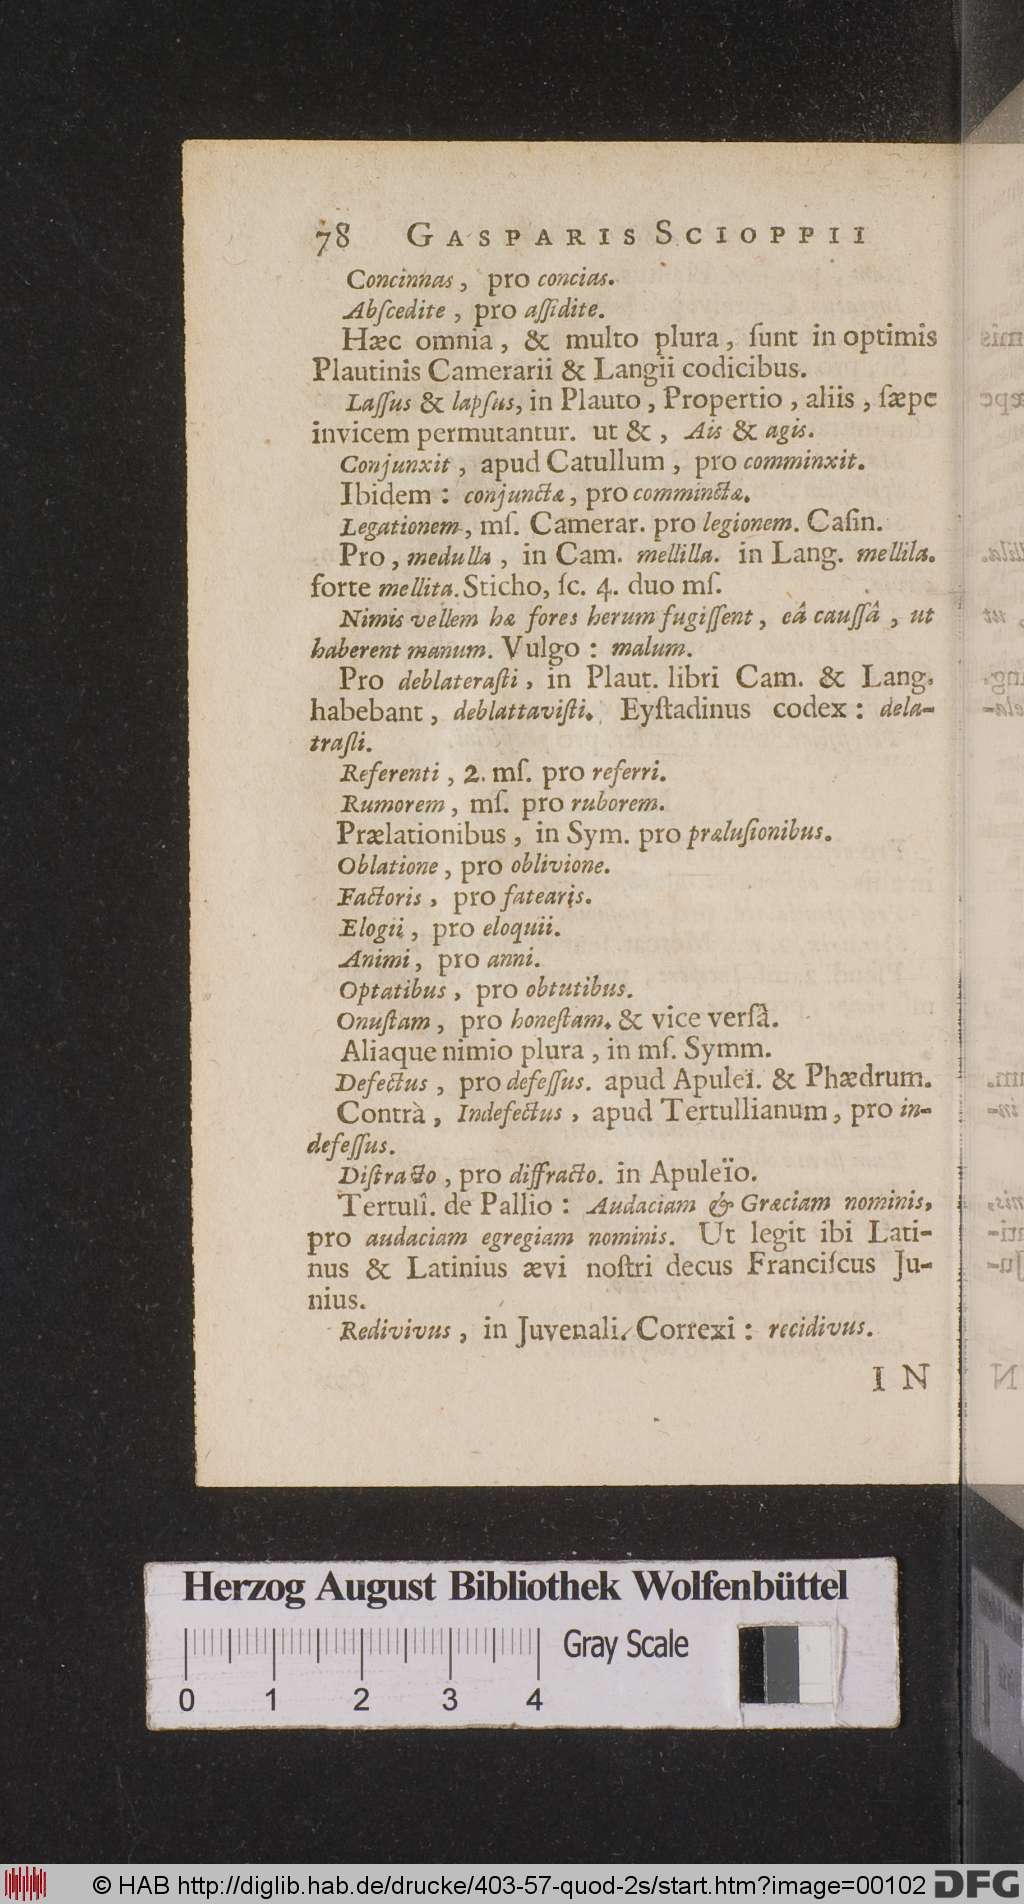 78 GASPARIS SCIOPPII
Concinnas, pro concias.
Abſcedite, pro aſſidite.
Hæc omnia, & multo plura, ſunt in optimis
Plautinis Camerarii & Langii codicibus.
Laſſus & lapſus, in Plauto, Propertio, aliis, ſæpe
invicem permutantur. ut &, Ais & agis.
Conjunxit, apud Catullum, pro comminxit.
Ibidem: conjunctæ, pro comminctæ.
Legationem, mſ. Camerar. pro legionem. Caſin.
Pro, medulla, in Cam. mellilla. in Lang. mellila.
forte mellita. Sticho, ſc. 4. duo mſ.
Nimis vellem hæ fores herum fugiſſent, eâ cauſſâ, ut
haberent manum. Vulgo: malum.
Pro deblateraſti, in Plaut. libri Cam. & Lang.
habebant, deblattaviſti. Eyſtadinus codex: dela-
traſti.
Referenti, 2. mſ. pro referri.
Rumorem, mſ. pro ruborem.
Prælationibus, in Sym. pro præluſionibus.
Oblatione, pro oblivione.
Factoris, pro fatearis.
Elogii, pro eloquii.
Animi, pro anni.
Optatibus, pro obtutibus.
Onuſtam, pro honeſtam. & vice verſâ.
Aliaque nimio plura, in mſ. Symm.
Defectus, pro defeſſus. apud Apulei. & Phædrum.
Contrà, Indefectus, apud Tertullianum, pro in-
defeſſus.
Diſtracto, pro diffracto. in Apuleïo.
Tertull. de Pallio: Audaciam & Græciam nominis,
pro audaciam egregiam nominis. Ut legit ibi Lati-
nus & Latinius ævi noſtri decus Franciſcus Ju-
nius.
Redivivus, in Juvenali. Correxi: recidivus.
IN
Herzog August Bibliothek Wolfenbüttel
Gray Scale
0 1 2 3 4
© HAB http://diglib.hab.de/drucke/403-57-quod-2s/start.htm?image=00102 DFG